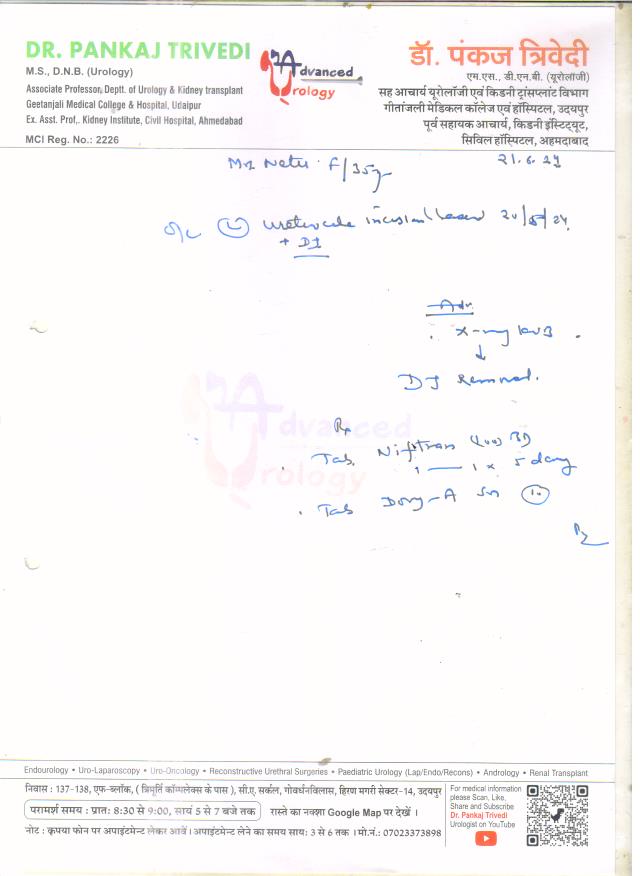 DR. PANKAJ TRIVEDI
M.S., D.N.B. (Urology)
Associate Professor, Deptt. of Urology & Kidney transplant
Geetanjali Medical College & Hospital, Udaipur
Ex. Asst. Prof,. Kidney Institute, Civil Hospital, Ahmedabad
MCI Reg. No.: 2226
Advanced
Urology
डॉ. पंकज त्रिवेदी
एम.एस., डी.एन.बी. (यूरोलॉजी)
सह आचार्य यूरोलॉजी एवं किडनी ट्रांसप्लांट विभाग
गीतांजली मेडिकल कॉलेज एवं हॉस्पिटल, उदयपुर
पूर्व सहायक आचार्य, किडनी इंस्टिट्यूट,
सिविल हॉस्पिटल, अहमदाबाद
F/35y
21.6.24
(L) ureterocele incision laser 20/5/24
+ DJ
Adv.
X-ray KUB
↓
DJ Removal.
Advanced
Urology
Rx
Tab. Niftran (100) BD
1 — 1 x 5 days
Tab 10
Endourology • Uro-Laparoscopy • Uro-Oncology • Reconstructive Urethral Surgeries • Paediatric Urology (Lap/Endo/Recons) • Andrology • Renal Transplant
निवास : 137-138, एफ-ब्लॉक, ( त्रिमूर्ति कॉम्पलेक्स के पास ), सी.ए. सर्कल, गोवर्धनविलास, हिरण मगरी सेक्टर-14, उदयपुर
परामर्श समय : प्रातः 8:30 से 9:00, सायं 5 से 7 बजे तक रास्ते का नक्शा Google Map पर देखें ।
नोट : कृपया फोन पर अपाइंटमेन्ट लेकर आवें । अपाइंटमेन्ट लेने का समय सायः 3 से 6 तक । मो.नं.: 07023373898
For medical information
please Scan, Like,
Share and Subscribe
Dr. Pankaj Trivedi
Urologist on YouTube